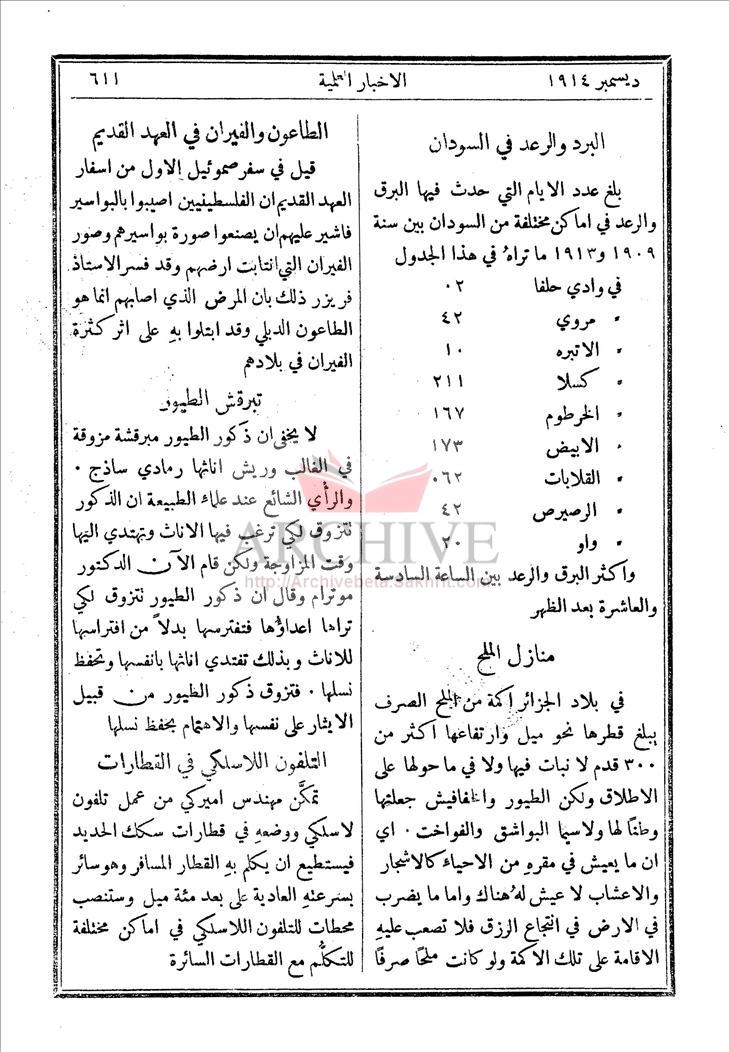 ديسمبر ١٩١٤
الاخبار العلمية
٦١١
البرد والرعد في السودان
بلغ عدد الايام التي حدث فيها البرق
والرعد في اماكن مختلفة من السودان بين سنة
١٩٠٩ و١٩١٣ ما تراهُ في هذا الجدول
في وادي حلفا ٠٢
" مروي ٤٢
" الاتبره ١٠
" كسلا ٢١١
" الخرطوم ١٦٧
" الابيض ١٧٣
" القلابات ٠٦٢
" الرصيرص ٤٢
" واو ٢٠
واكثر البرق والرعد بين الساعة السادسة
والعاشرة بعد الظهر
منازل الملح
في بلاد الجزائر اكمة من الملح الصرف
يبلغ قطرها نحو ميل وارتفاعها اكثر من
٣٠٠ قدم لا نبات فيها ولا في ما حولها على
الاطلاق ولكن الطيور والخفافيش جعلتها
وطنًا لها ولاسيما البواشق والفواخت . اي
ان ما يعيش في مقرهِ من الاحياء كالاشجار
والاعشاب لا عيش لهُ هناك واما ما يضرب
في الارض في انتجاع الرزق فلا تصعب عليهِ
الاقامة على تلك الاكمة ولو كانت ملحًا صرفًا
الطاعون والفيران في العهد القديم
قيل في سفر صموئيل الاول من اسفار
العهد القديم ان الفلسطينيين اصيبوا بالبواسير
فاشير عليهم ان يصنعوا صورة بواسيرهم وصور
الفيران التي انتابت ارضهم وقد فسر الاستاذ
فريزر ذلك بان المرض الذي اصابهم انما هو
الطاعون الدبلي وقد ابتلوا بهِ على اثر كثرة
الفيران في بلادهم
تبرقش الطيور
لا يخفى ان ذكور الطيور مبرقشة مزوقة
في الغالب وريش اناثها رمادي ساذج .
والرأي الشائع عند علماء الطبيعة ان الذكور
تتزوق لكي ترغب فيها الاناث وتهتدي اليها
وقت المزاوجة ولكن قام الآن الدكتور
موترام وقال ان ذكور الطيور تتزوق لكي
تراها اعداؤها فتفترسها بدلاً من افتراسها
للاناث وبذلك تفتدي اناثها بانفسها وتحفظ
نسلها . فتزوق ذكور الطيور من قبيل
الايثار على نفسها والاهتمام بحفظ نسلها
التلفون اللاسلكي في القطارات
تمكَّن مهندس اميركي من عمل تلفون
لاسلكي ووضعهِ في قطارات سكك الحديد
فيستطيع ان يكلم بهِ القطار المسافر وهو سائر
بسرعتهِ العادية على بعد مئة ميل وستنصب
محطات للتلفون اللاسلكي في اماكن مختلفة
للتكلُّم مع القطارات السائرة
ARCHIVE
http://Archivebeta.Sakhrit.com